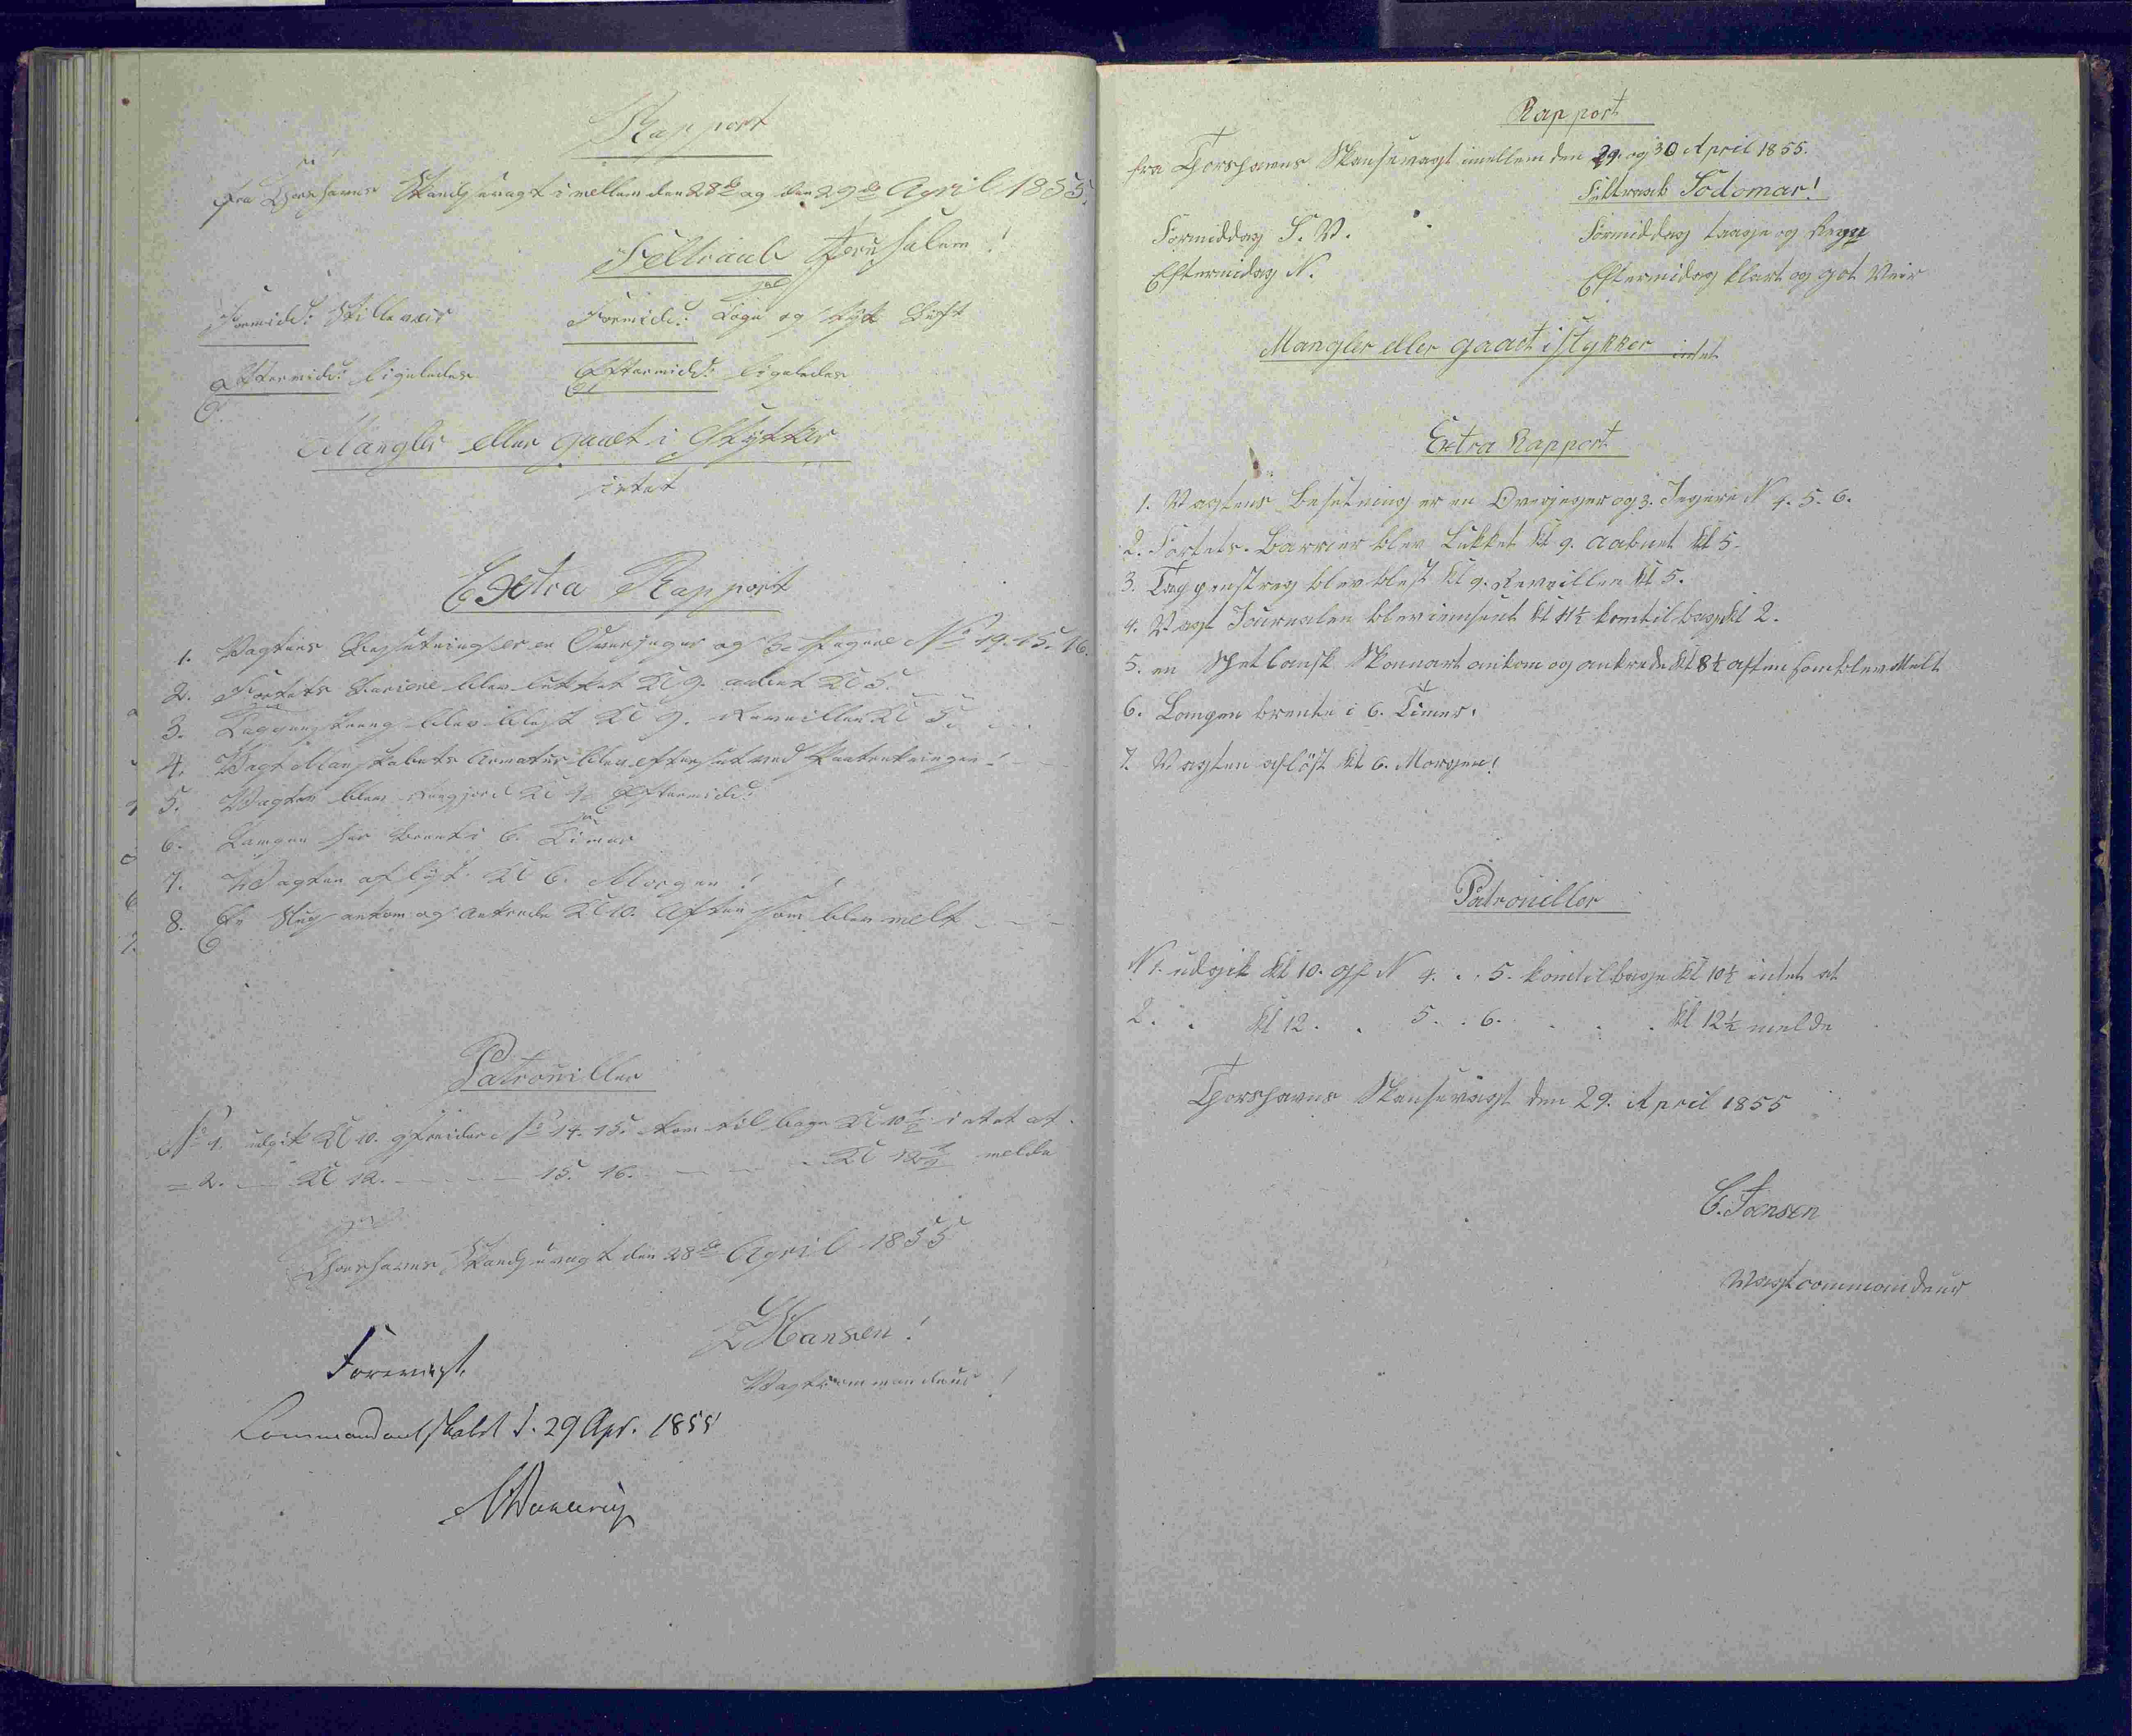 Rapport
fra Thorshavns Skandsevagt imellem den 28de og den 29de April 1855.
Feltraab Jerusalem!
Formidd: Stille veir
Formidd: Taage og tyk Luft
Eftermidd: ligeledes
Eftermidd: ligeledes
Mangler eller gaaet i Stykker
intet
Extra Rapport
1. Vagtens Besetning er en Overjeger og 3 Jegere No 14. 15. 16.
2. Fortets Bariere blev lukket Kl 9. aabnet Kl 5.
3. Tappenstreg blev blest Kl 9. Reveillen Kl 5.
4. Vagt Manskabets Armatur blev efterset ved
5. Vagten blev reengjord Kl 4 Eftermidd:
6. Lampen har brent i 6. Timer
7. Vagten aflöst Kl 6. Morgen!
8. En Slup ankom og ankrede Kl 10. Aften som blev melt
Patrouiller
No 1. udgik Kl 10. No 14. 15. kom tilbage Kl 10½ intet at
" 2. — Kl 12. — 15. 16. — Kl 12½ melde
Thorshavns Skandsevagt den 28de April 1855
Hansen!
Vagtcommandeur!
Forevist.
Commandantskabet d. 29 Apr. 1855
Rapport
fra Thorshavns Skansevagt imellem den 29. og 30 April 1855.
Feltraab Sodomar!
Formiddag S. V.
Formiddag taage og Regn
Eftermidag N.
Eftermidag klart og got Veir
Mangler eller gaaet i stykker intet
Extra Rapport
1. Vagtens Besetning er en Overjeger og 3. Jegere N 4. 5. 6.
2. Fortets. Barrier blev Lukket Kl 9. aabnet Kl 5.
3. Tappenstreg blev blest Kl 9. Reveillen Kl 5.
4. Vagt Journalen blev iemsent Kl 11½ kom tilbage Kl 2.
5. en Shetlansk Skonnart ankom og ankrede Kl 8½ aften som blev Melt
6. Lampen brente i 6. Timer.
7. Vagten aflöst Kl 6. Morgen!
Patrouiller
N 1. udgik Kl 10. gf N 4. . . 5. kom tilbage Kl 10½ intet at
2. . Kl 12. . 5. . 6. . . . Kl 12½ melde
Thorshavns Skansevagt den 29. April 1855
C. Jansen
Vagtcommandeur